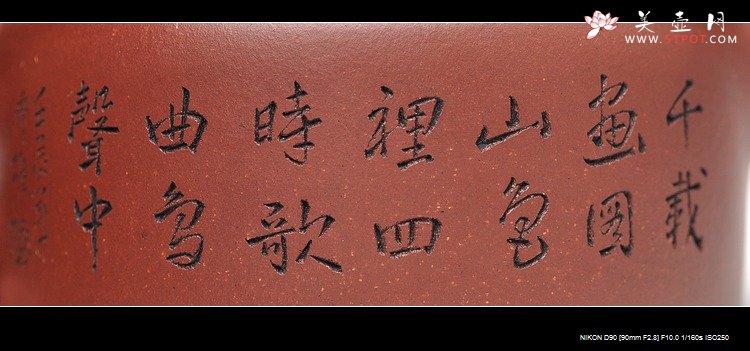 美壶网
WWW.51POT.COM
千載
畫圖
山色
裡四
時歌
曲鳥
聲中
NIKON D90 [90mm F2.8] F10.0 1/160s ISO250